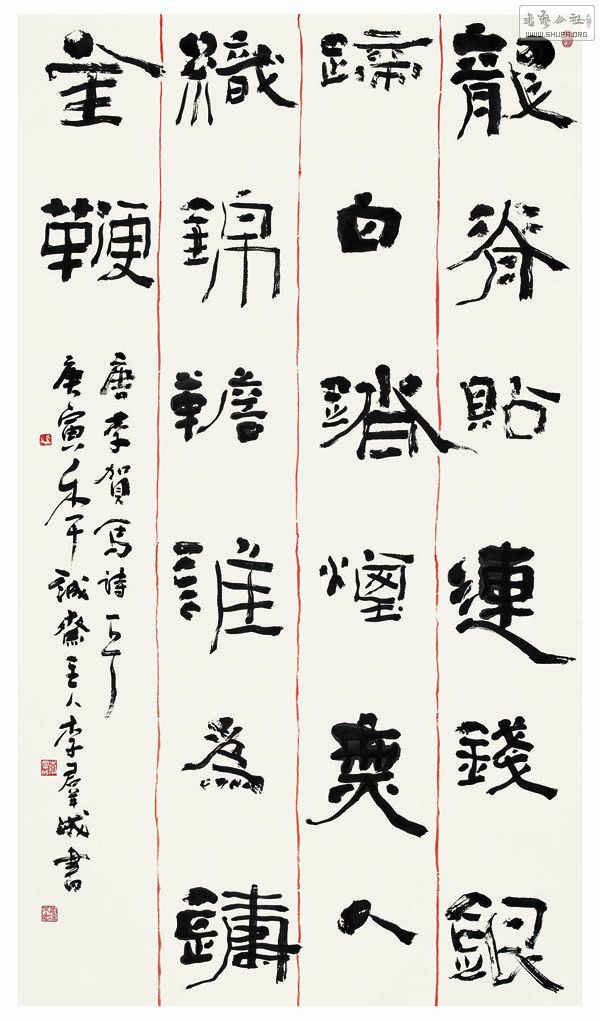 書藝公社
WWW.SHUFA.ORG
龍脊貼連錢銀
蹄白踏煙無人
織錦韂誰為鑄
金鞭
唐李賀馬詩一首
庚寅年于誠齋主人李羣成書